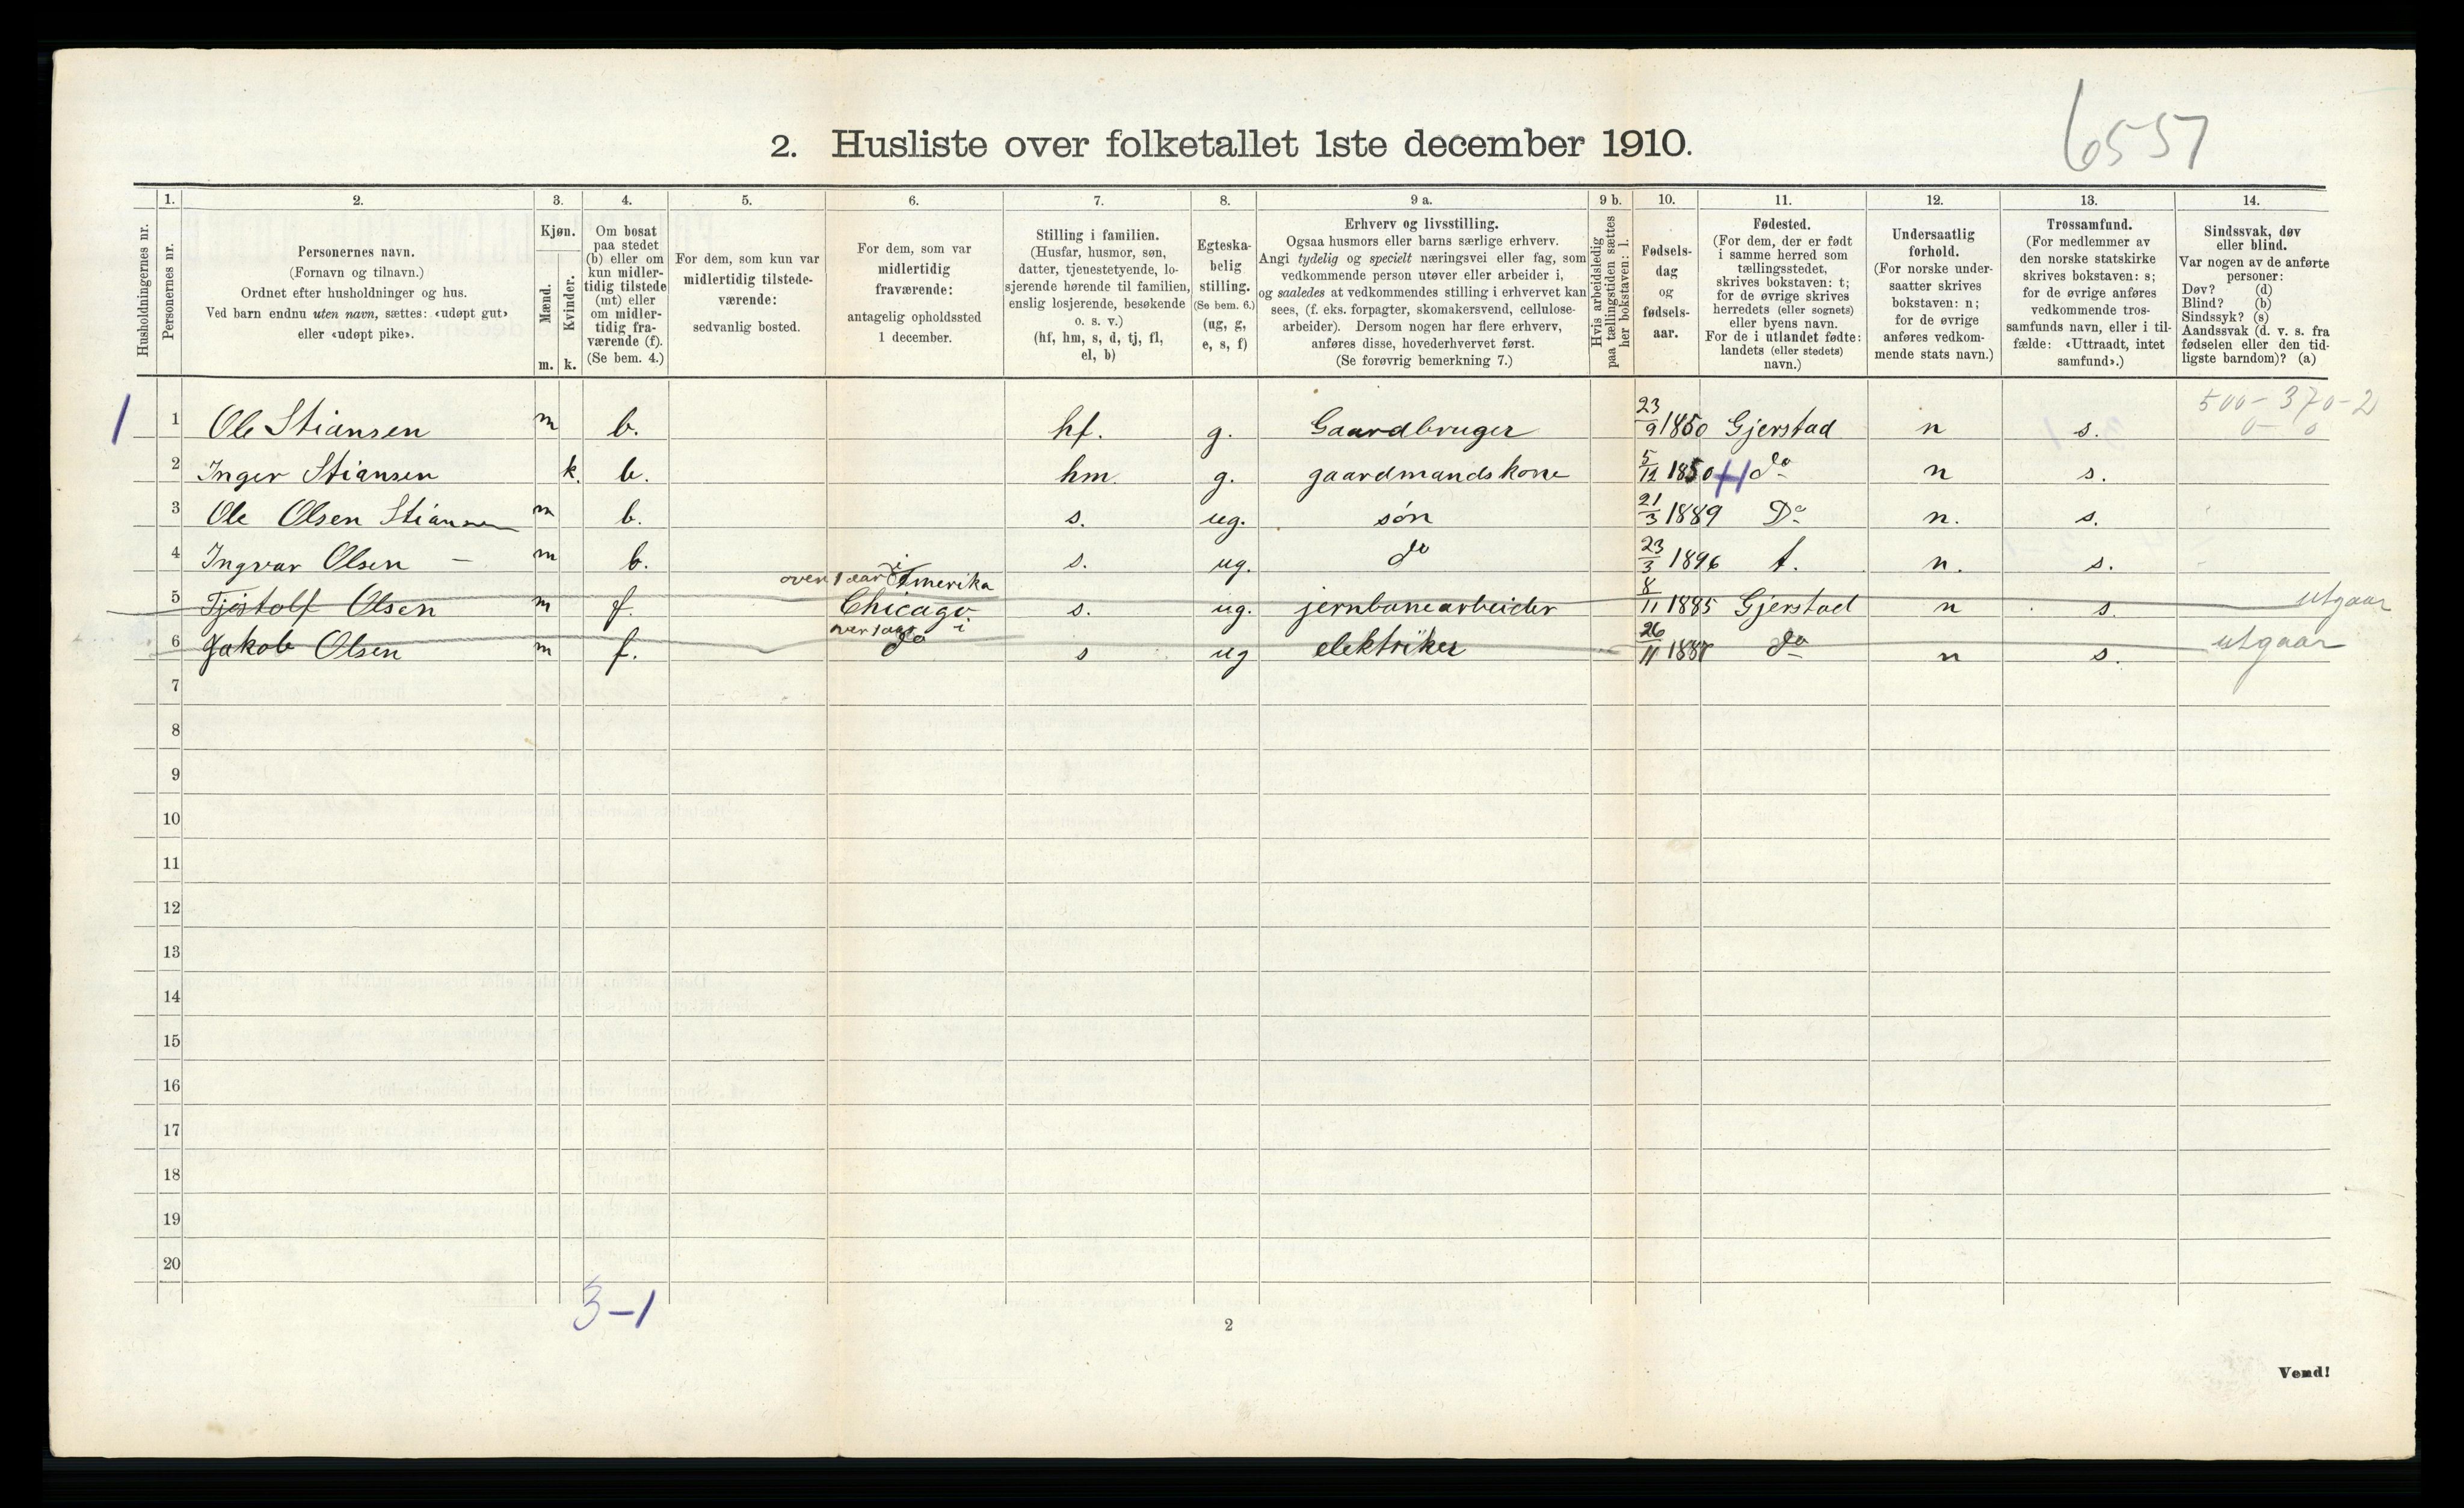 6557
2. Husliste over folketallet 1ste december 1910.
Husholdningernes nr.
1.
Personernes nr.
2.
Personernes navn.
(Fornavn og tilnavn.)
Ordnet efter husholdninger og hus.
Ved barn endnu uten navn, sættes: «udøpt gut»
eller «udøpt pike».
3.
Kjøn.
Mænd.
m.
Kvinder.
k.
4.
Om bosat
paa stedet
(b) eller om
kun midler-
tidig tilstede
(mt) eller
om midler-
tidig fra-
værende (f).
(Se bem. 4.)
5.
For dem, som kun var
midlertidig tilstede-
værende:
sedvanlig bosted.
6.
For dem, som var
midlertidig
fraværende:
antagelig opholdssted
1 december.
7.
Stilling i familien.
(Husfar, husmor, søn,
datter, tjenestetyende, lo-
sjerende hørende til familien,
enslig losjerende, besøkende
o. s. v.)
(hf, hm, s, d, tj, fl,
el, b)
8.
Egteska-
belig
stilling.
(Se bem. 6.)
(ug, g,
e, s, f)
9 a.
Erhverv og livsstilling.
Ogsaa husmors eller barns særlige erhverv.
Angi tydelig og specielt næringsvei eller fag, som
vedkommende person utøver eller arbeider i,
og saaledes at vedkommendes stilling i erhvervet kan
sees, (f. eks. forpagter, skomakersvend, cellulose-
arbeider). Dersom nogen har flere erhverv,
anføres disse, hovederhvervet først.
(Se forøvrig bemerkning 7.)
9 b.
Hvis arbeidsledig
paa tællingstiden sættes
her bokstaven: l.
10.
Fødsels-
dag
og
fødsels-
aar.
11.
Fødested.
(For dem, der er født
i samme herred som
tællingsstedet,
skrives bokstaven: t;
for de øvrige skrives
herredets (eller sognets)
eller byens navn.
For de i utlandet fødte:
landets (eller stedets)
navn.)
12.
Undersaatlig
forhold.
(For norske under-
saatter skrives
bokstaven: n;
for de øvrige
anføres vedkom-
mende stats navn.)
13.
Trossamfund.
(For medlemmer av
den norske statskirke
skrives bokstaven: s;
for de øvrige anføres
vedkommende tros-
samfunds navn, eller i til-
fælde: «Uttraadt, intet
samfund».)
14.
Sindssvak, døv
eller blind.
Var nogen av de anførte
personer:
Døv? (d)
Blind? (b)
Sindssyk? (s)
Aandssvak (d. v. s. fra
fødselen eller den tid-
ligste barndom)? (a)
500-370-2
0-0
1 1 Ole Stiansen m b. hf. g. Gaardbruger 23/9 1850 Gjerstad n s.
2 Inger Stiansen k. b. hm. g. gaardmandskone 5/12 1850 do n s.
3 Ole Olsen Stiansen m b. s. ug. søn 21/3 1889 Do n. s.
4 Ingvar Olsen — m b. s. ug. do 23/3 1896 t. n. s.
over 1 aar i Amerika
5 Tjøstolf Olsen m f. Chicago s. ug. jernbanearbeider 8/11 1885 Gjerstad n s. utgaar
over 1 aar i
6 Jakob Olsen m f. do s ug elektriker 26/11 do n s. utgaar
7
8
9
10
11
12
13
14
15
16
17
18
19
20
3-1
2
Vend!